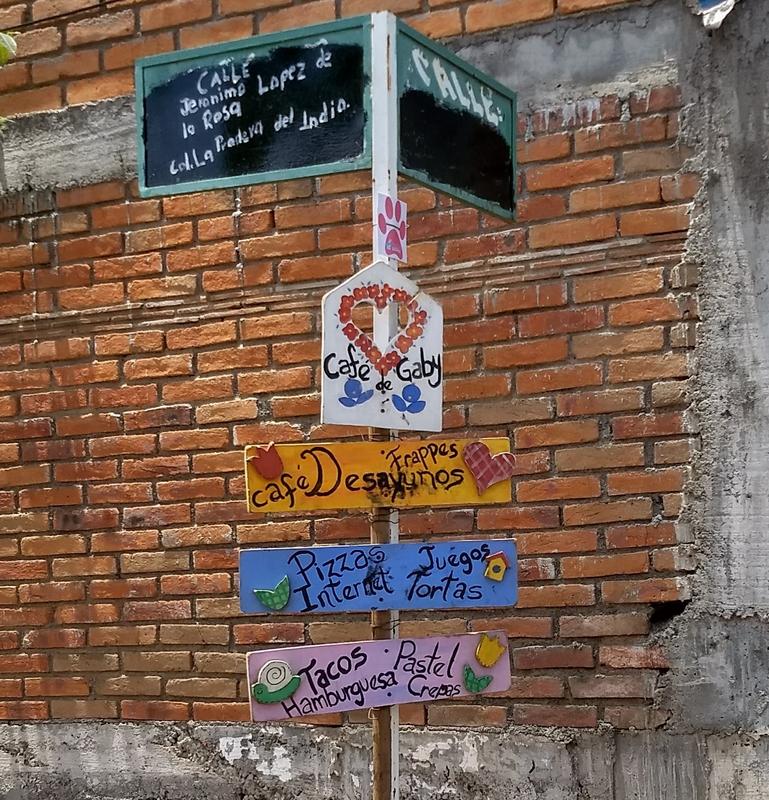 CALLE
Jeronimo Lopez de
la Rosa
Col. La Pradera del Indio.
CALLE.
Café de Gaby
Frappes
café Desayunos
Pizzas Juégos
Internet Tortas
Tacos Pastel
Hamburguesa Crepas